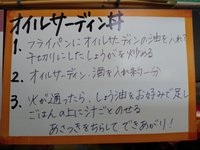 オイルサーディン丼
1. フライパンにオイルサーディンの油を入れ
千切りにしたしょうがを炒める
2. オイルサーディン・酒を入れ約1分
3. 火が通ったら、しょう油をお好みで足し
ごはんの上に汁ごとのせる
あさつきをちらして できあがり!